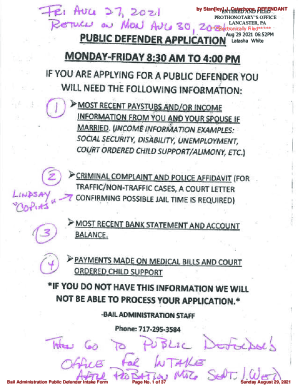 by Stan J. Caterbone, DEFENDANT
ENTERED AND FILED
PROTHONOTARY'S OFFICE
LANCASTER, PA
***Electronically Filed***
Aug 29 2021 06:52PM
Latosha White
FRI AUG 27, 2021
RETURN ON MON AUG 30, 2021
PUBLIC DEFENDER APPLICATION
MONDAY-FRIDAY 8:30 AM TO 4:00 PM
IF YOU ARE APPLYING FOR A PUBLIC DEFENDER YOU
WILL NEED THE FOLLOWING INFORMATION:
1 MOST RECENT PAYSTUBS AND/OR INCOME
INFORMATION FROM YOU AND YOUR SPOUSE IF
MARRIED. (INCOME INFORMATION EXAMPLES:
SOCIAL SECURITY, DISABILITY, UNEMPLOYMENT,
COURT ORDERED CHILD SUPPORT/ALIMONY, ETC.)
2 CRIMINAL COMPLAINT AND POLICE AFFIDAVIT (FOR
TRAFFIC/NON-TRAFFIC CASES, A COURT LETTER
CONFIRMING POSSIBLE JAIL TIME IS REQUIRED)
LINDSAY
"COPIES"
3 MOST RECENT BANK STATEMENT AND ACCOUNT
BALANCE.
4 PAYMENTS MADE ON MEDICAL BILLS AND COURT
ORDERED CHILD SUPPORT
*IF YOU DO NOT HAVE THIS INFORMATION WE WILL
NOT BE ABLE TO PROCESS YOUR APPLICATION.*
-BAIL ADMINISTRATION STAFF
Phone: 717-295-3584
THEN GO TO PUBLIC DEFENDER'S
OFFICE FOR INTAKE
AFTER PROBATION MTG SEPT. 1 WED
Bail Administration Public Defender Intake Form
Page No. 1 of 37
Sunday August 29, 2021